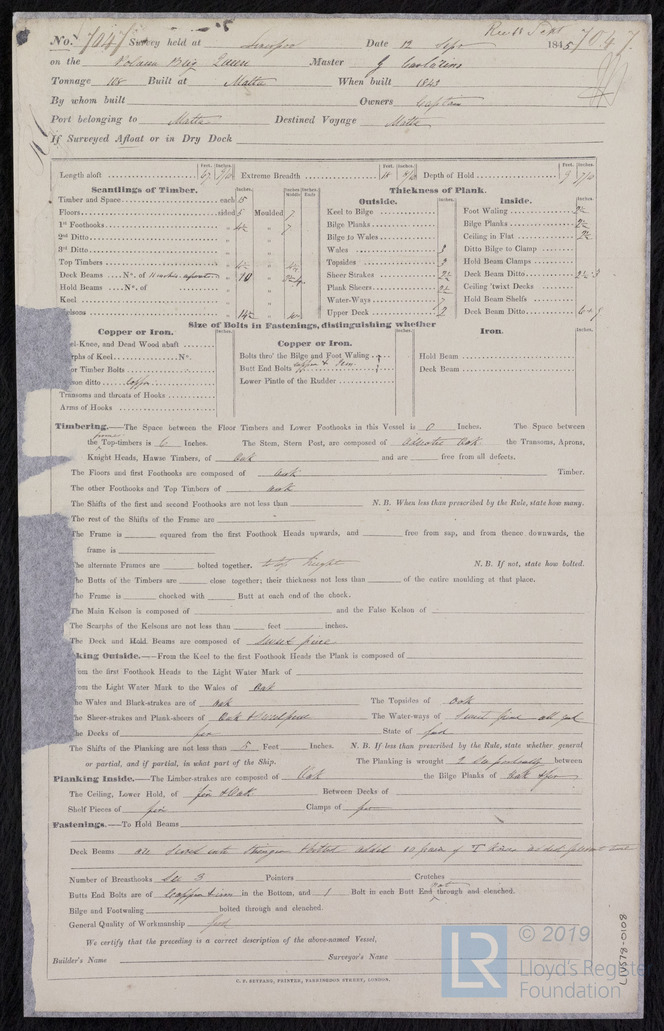 Recd 18 Sept
No. 7047 Survey held at Liverpool Date 12 Sepr 1845 7047.
on the Polacca Brig Queen Master G Castorino
Tonnage 108 Built at Malta When built 1843
By whom built Owners Captain
Port belonging to Malta Destined Voyage Malta
If Surveyed Afloat or in Dry Dock
Length aloft 67 Extreme Breadth 18 Depth of Hold 9 7/10
Scantlings of Timber. Thickness of Plank.
Outside. Inside.
Timber and Space each 15 Keel to Bilge Foot Waling 2½
Floors sided 5 Moulded 7 Bilge Planks Bilge Planks 2½
1st Foothooks 7 Bilge to Wales Ceiling in Flat
2nd Ditto Wales Ditto Bilge to Clamp
3rd Ditto Topsides 2 Hold Beam Clamps
Top Timbers Sheer Strakes 2½ Deck Beam Ditto
Deck Beams No. of 10 Plank Sheers 2½ Ceiling 'twixt Decks
Hold Beams No. of Water-Ways Hold Beam Shelfs
Keel Upper Deck 2 Deck Beam Ditto
Kelsons
Size of Bolts in Fastenings, distinguishing whether
Copper or Iron. Copper or Iron. Iron.
Heel-Knee, and Dead Wood abaft Bolts thro' the Bilge and Foot Waling Hold Beam
Scarphs of Keel No. Butt End Bolts Copper & Iron Deck Beam
Floor Timber Bolts Lower Pintle of the Rudder
Kelson ditto Copper
Transoms and throats of Hooks
Arms of Hooks
Timbering.—The Space between the Floor Timbers and Lower Foothooks in this Vessel is 0 Inches. The Space between
the Top-timbers is 6 Inches. The Stem, Stern Post, are composed of Adriatic Oak the Transoms, Aprons,
Knight Heads, Hawse Timbers, of Oak and are free from all defects.
The Floors and first Foothooks are composed of oak Timber.
The other Foothooks and Top Timbers of oak
The Shifts of the first and second Foothooks are not less than N. B. When less than prescribed by the Rule, state how many.
The rest of the Shifts of the Frame are
The Frame is squared from the first Foothook Heads upwards, and free from sap, and from thence downwards, the
frame is
The alternate Frames are bolted together. to top height N. B. If not, state how bolted.
The Butts of the Timbers are close together; their thickness not less than of the entire moulding at that place.
The Frame is chocked with Butt at each end of the chock.
The Main Kelson is composed of and the False Kelson of
The Scarphs of the Kelsons are not less than feet inches.
The Deck and Hold Beams are composed of Sweet pine
king Outside.—From the Keel to the first Foothook Heads the Plank is composed of
From the first Foothook Heads to the Light Water Mark of
From the Light Water Mark to the Wales of Oak
The Wales and Black-strakes are of oak The Topsides of Oak
The Sheer-strakes and Plank-sheers of Oak & Sweet pine The Water-ways of Sweet pine all good
The Decks of pine State of good
The Shifts of the Planking are not less than 5 Feet Inches. N. B. If less than prescribed by the Rule, state whether general
or partial, and if partial, in what part of the Ship. The Planking is wrought 2 between
Planking Inside.—The Limber-strakes are composed of Oak the Bilge Planks of Oak & pine
The Ceiling, Lower Hold, of pine & Oak. Between Decks of
Shelf Pieces of pine Clamps of pine
Fastenings.—To Hold Beams
Deck Beams are Scored into Stringer & bolted added 10 pair of T knees
Number of Breasthooks 3 Pointers Crotches
Butts End Bolts are of Copper & iron in the Bottom, and 1 Bolt in each Butt End not through and clenched.
Bilge and Footwaling bolted through and clenched.
General Quality of Workmanship good
We certify that the preceding is a correct description of the above-named Vessel,
Builder's Name Surveyor's Name
C. F. SEYFANG, PRINTER, FARRINGDON STREET, LONDON.
LIV578-0108
LR
© 2019
Lloyd's Register
Foundation